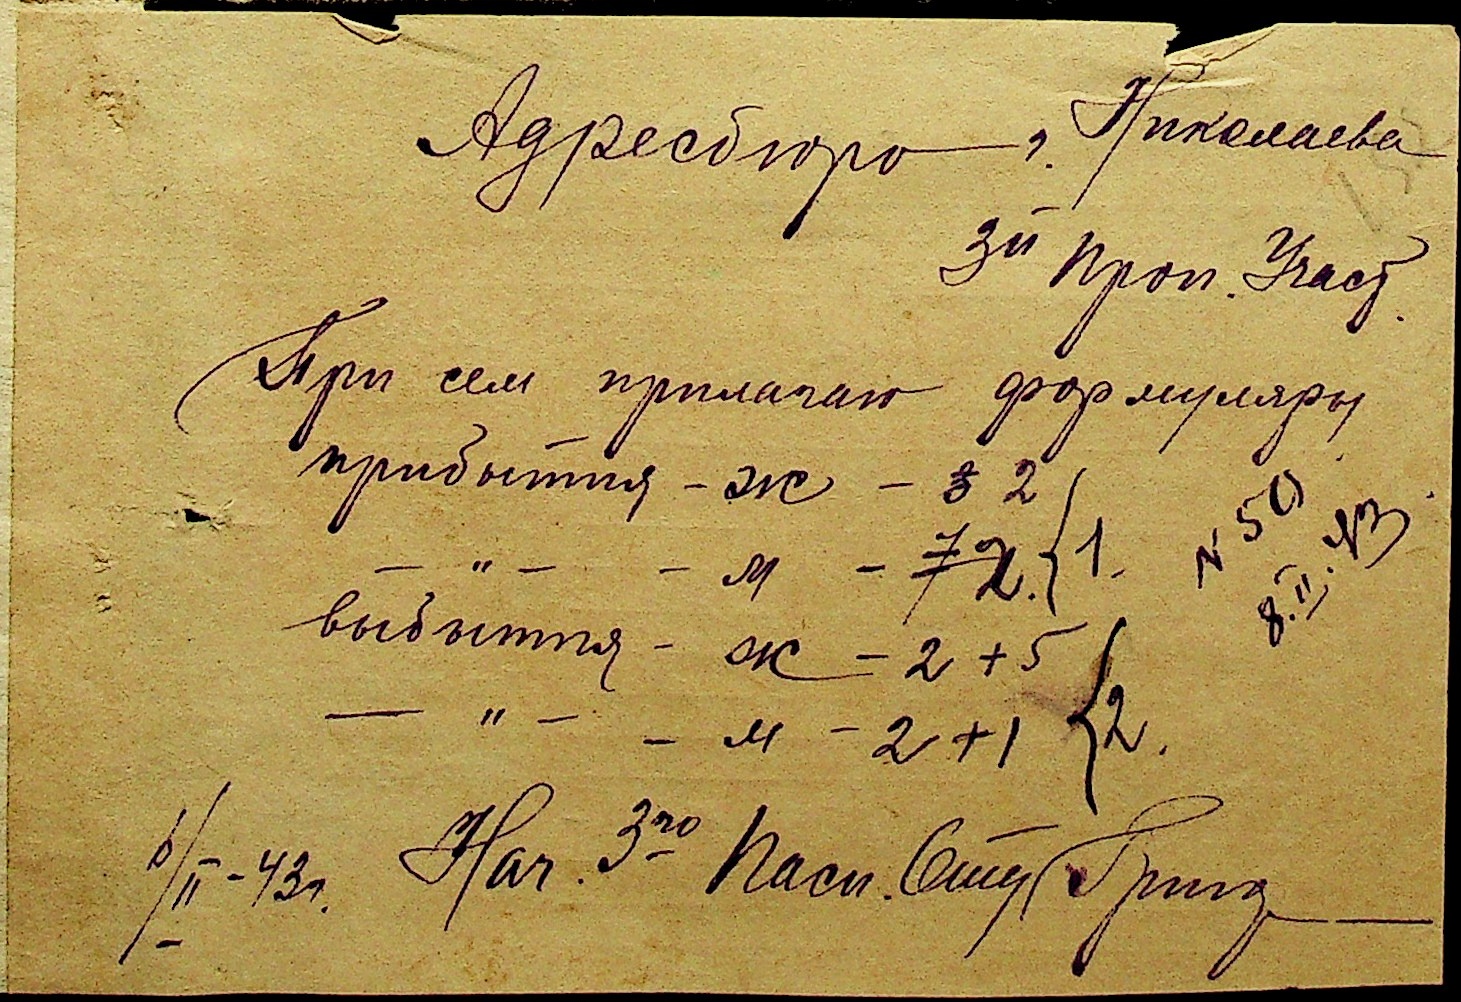 Адресбюро г. Николаева
3й Проп. Участ.
При сем прилагаю формуляры
прибытия - ж - 2
— " — - м - 2. { 1.
N 50
8.II.43
выбытия - ж - 2 + 5
— " — - м - 2 + 1 { 2.
6/II-43г. Нач. 3го Пасп.